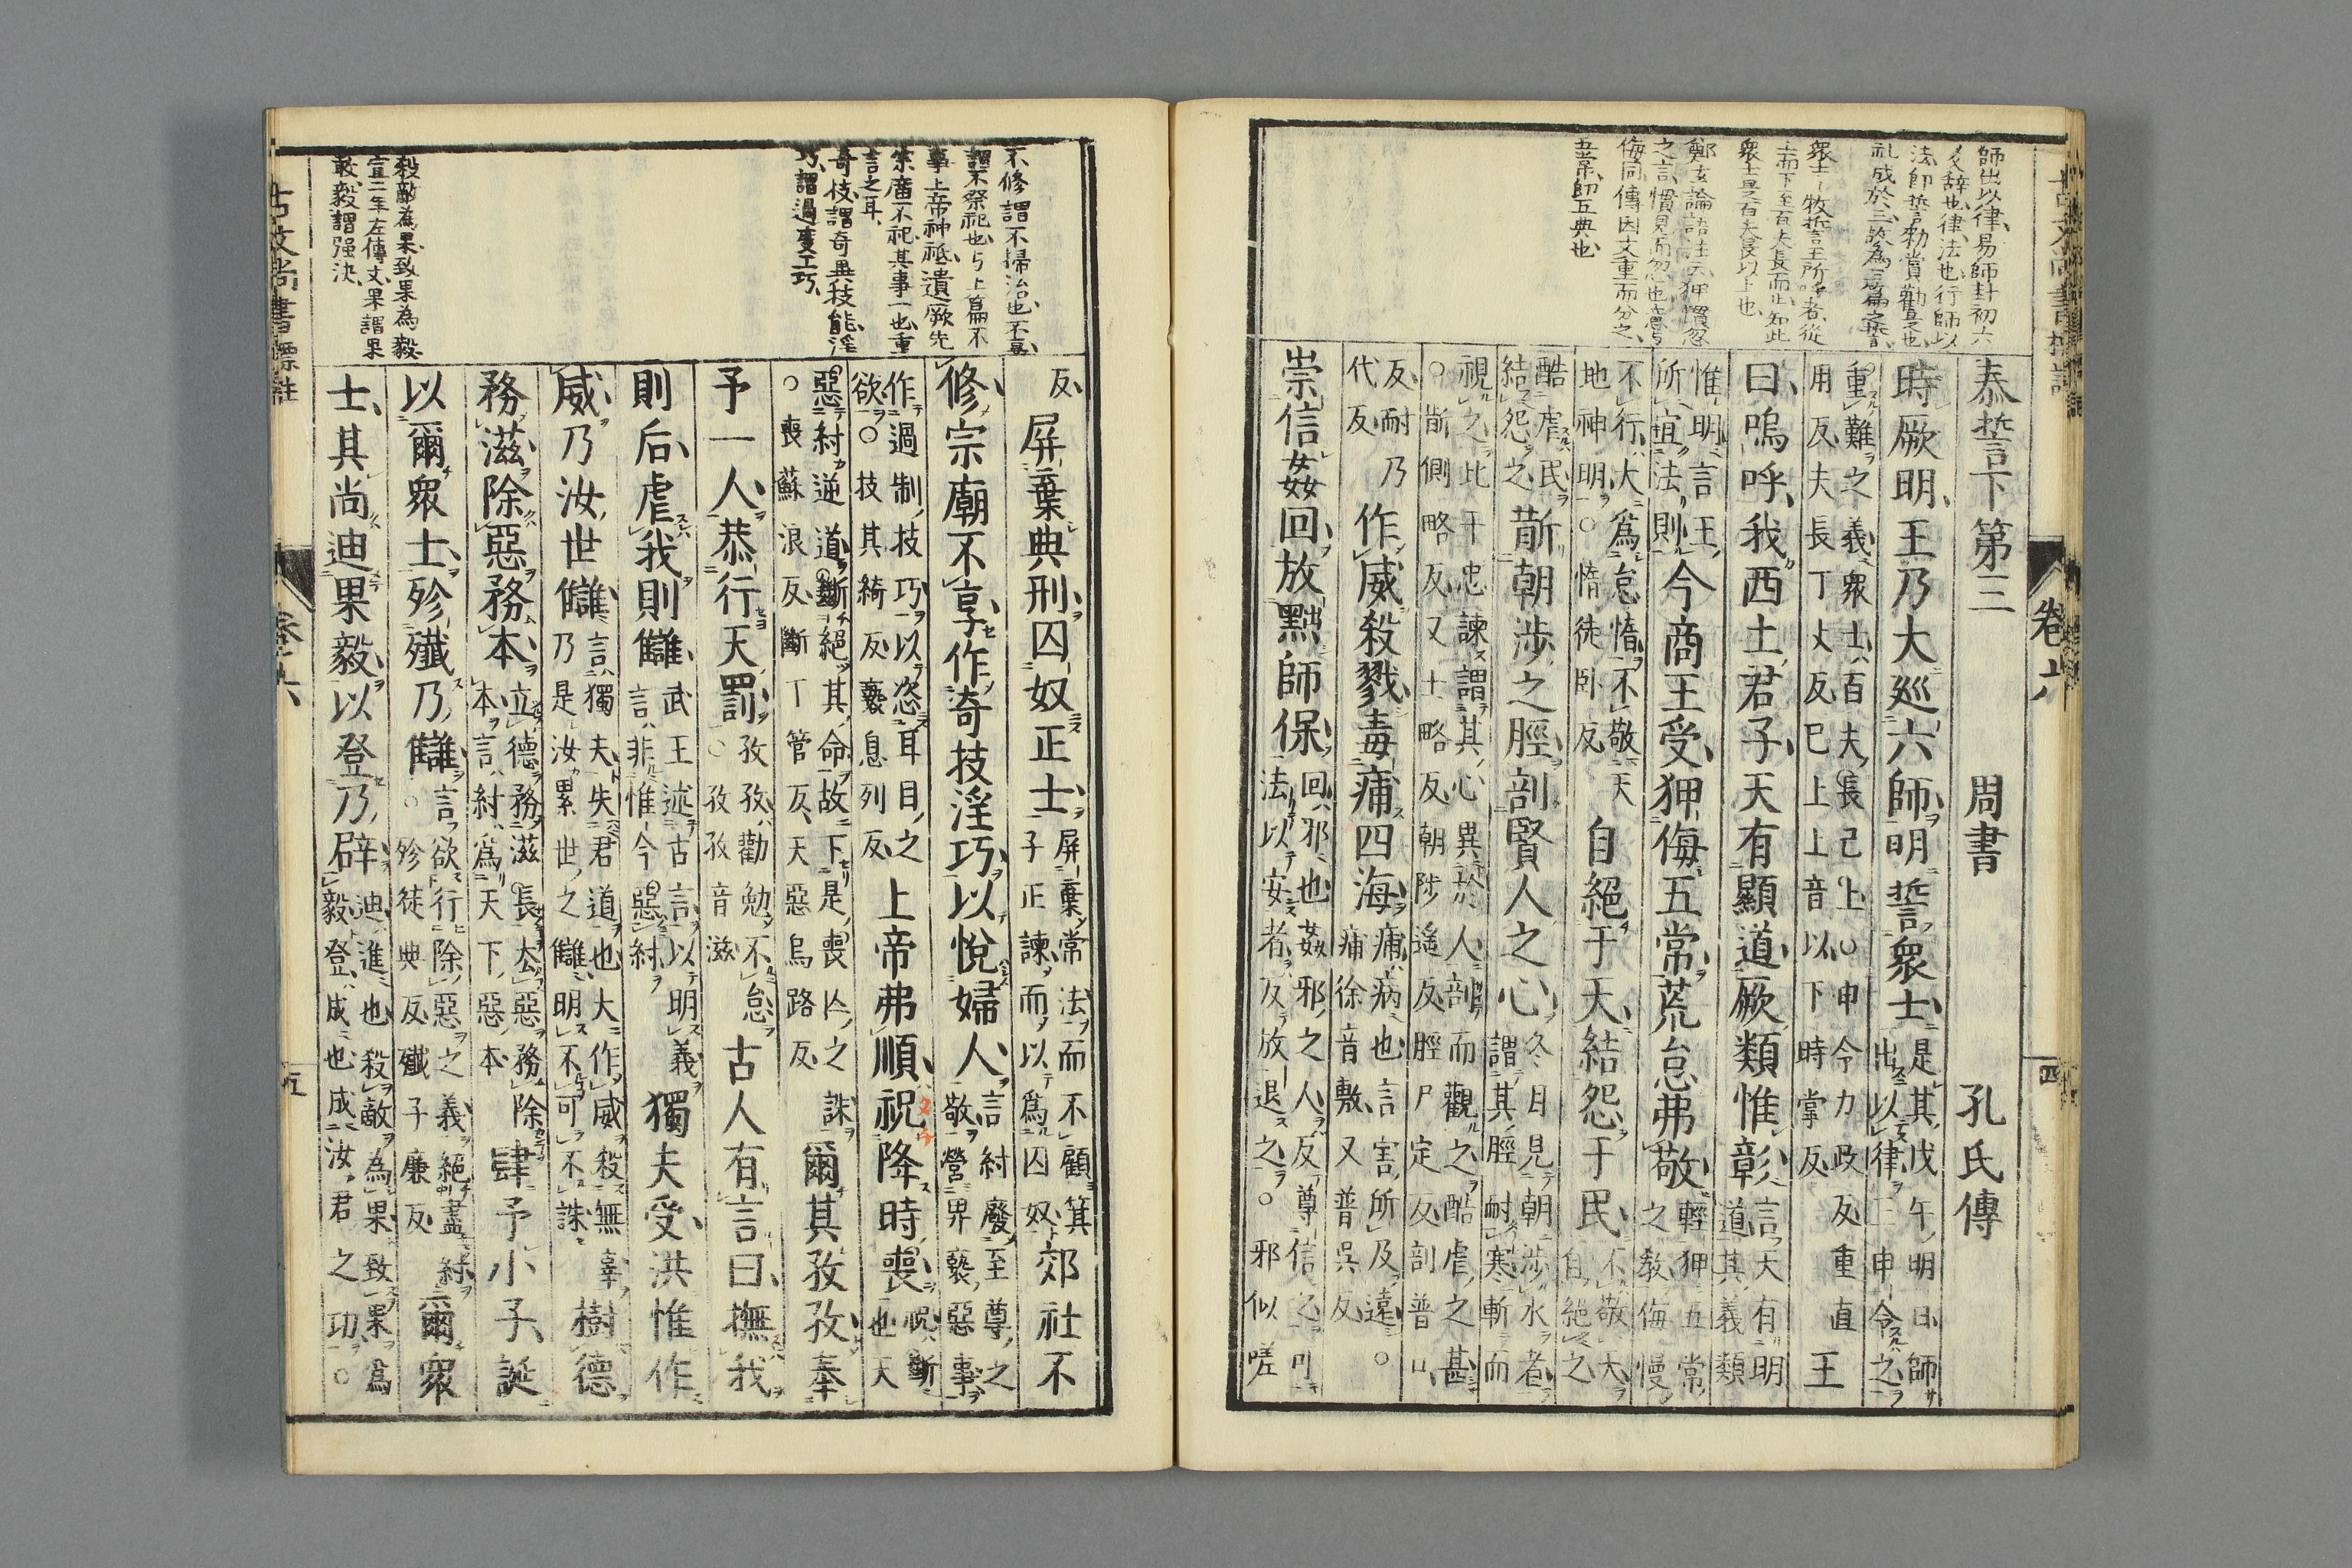 師出以律、易師卦初六
爻辭也、律、法也、行師以
法、即誓勑賞勸是也
礼成於三、故為三篇之誓、
衆士-牧誓王所呼者、從
上而下至百夫長而止、知此
衆士是百夫長以上也、
鄭玄論語註云、狎慣忽
之言、慣見而忽也、意与
侮同、傳因文重而分之、
五常、即五典也、
卷六
四
泰誓下第三 周書 孔氏傳
時厥明、王乃大巡六師、明誓衆士、
是其戊午、明日、師
出以律、三申令之
重難之義、衆士、百夫長已上○申令力政反重直
用反夫長丁丈反已上上音以下時掌反
王
曰、嗚呼、我西土君子、天有顯道、厥類惟彰、
言天有明
道、其義類
惟明、言王
所宜法則
今商王受、狎侮五常、荒怠弗敬、
輕狎五常
之敎、侮慢
不行、大爲怠惰、不敬天
地神明○惰徒卧反
自絕于天、結怨于民、
不敬天、
自絕之
酷虐民、
結怨之
斮朝涉之脛、剖賢人之心、
冬日見朝涉水者、
謂其脛耐寒、斬而
視之、此干忠諫、謂其心異於人、剖而觀之、酷虐之甚
○斮側略反又士略反朝陟遙反脛尸定反剖普口
反耐乃
代反
作威殺戮、毒痡四海、
痡、病也、言害所及遠○
痡徐音敷又普吳反
崇信姦回、放黜師保、
回、邪也、姦邪之人反尊信之可
法以安者、反放退之○邪似嗟
反
屏棄典刑、囚奴正士、
屏棄常法而不顧、箕
子正諫、而以爲囚奴
郊社不
修、宗廟不享、作奇技淫巧以悅婦人、
言紂廢至尊之
敬、營卑褻惡事
作過制技巧、以恣耳目之
欲○技其綺反褻息列反
上帝弗順、祝降時喪、
祝、斷
也、天
惡紂逆道、斷絕其命、故下是喪亾之誅
○喪蘇浪反斷丁管反天惡烏路反
爾其孜孜奉
予一人、恭行天罰、
孜孜、勸勉不怠
○孜孜音滋
古人有言曰、撫我
則后、虐我則讎、
武王述古言以明義
言非惟今惡紂
獨夫受、洪惟作
威、乃汝世讎、
言獨夫、失君道也、大作威殺無辜、
乃是汝累世之讎、明不可不誅
樹德
務滋、除惡務本、
立德務滋長、去惡務除
本、言紂爲天下惡本
肆予小子、誕
以爾衆士、殄殲乃讎、
言欲行除惡之義絕盡紂
○殄徒典反殲子廉反
爾衆
士、其尚迪果毅、以登乃辟、
迪、進也、殺敵爲果、致果爲
毅、登、成也、成汝君之功○
不修、謂不掃治也、不享、
謂不祭祀也、与上篇不
事上帝神祗、遺厥先
宗廟不祀、其事一也、重
言之耳、
奇技、謂奇異技能、淫
巧、謂過度工巧、
殺敵為果、致果為毅
宣二年左傳文、果謂果
敢、毅謂强決、
古文尚書標註
卷六
五